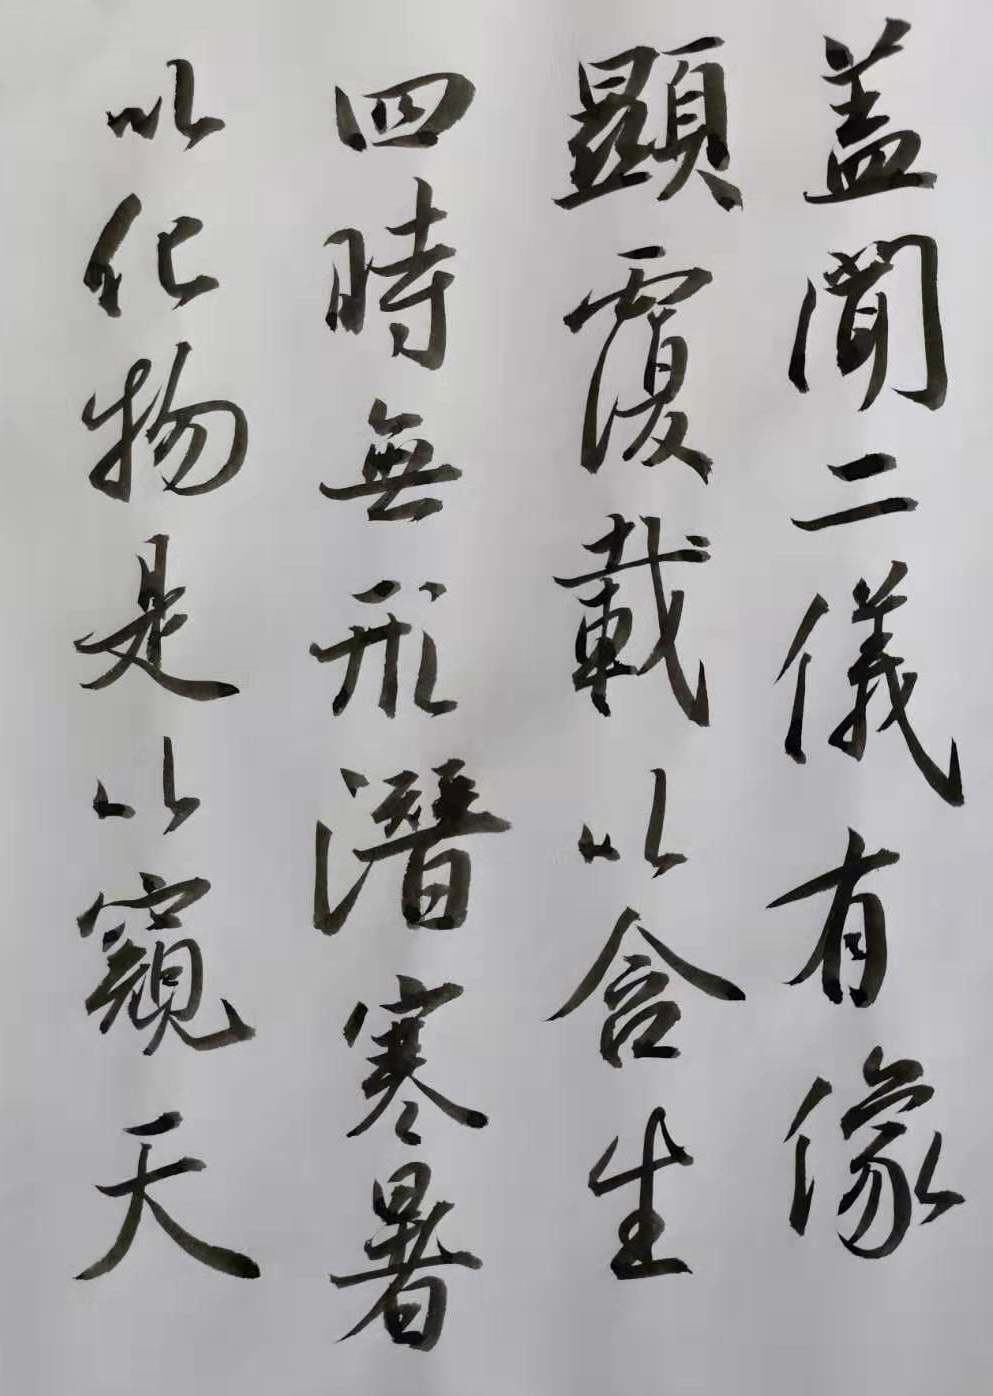 盖聞二儀有像
顯覆載以含生
四時無形潛寒暑
以化物是以窺天